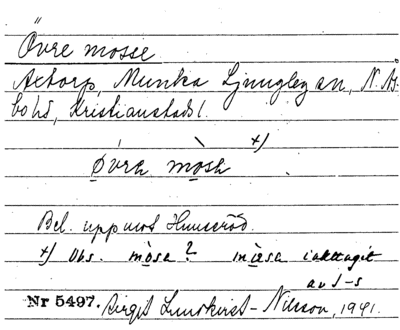 Övre mosse
Axtorp, Munka Ljungby sn, N. Ås-
bo hd, Kristianstads l.
x)
øvrα mòsα
Bel. uppmot Hunseröd.
x) Obs. mòsα? iakttagit
av l-s
Nr 5497. Birgit Lundkvist-Nilsson, 1941.